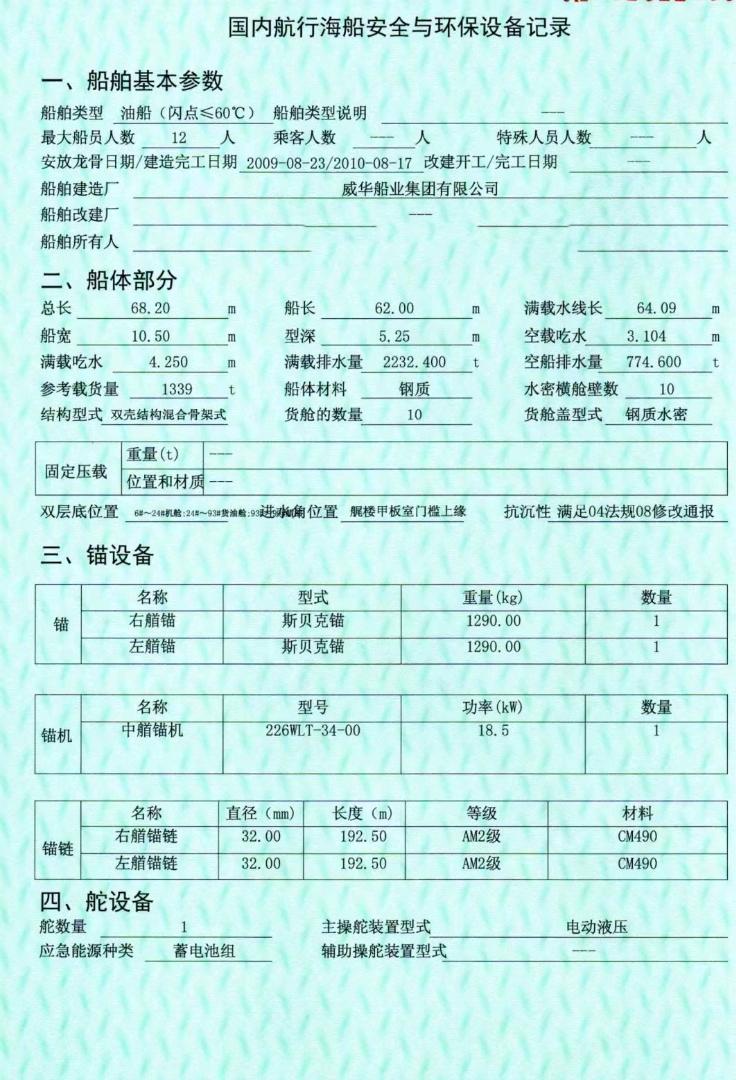 国内航行海船安全与环保设备记录
一、船舶基本参数
船舶类型 油船（闪点≤60℃） 船舶类型说明 ---
最大船员人数 12 人 乘客人数 --- 人 特殊人员人数 --- 人
安放龙骨日期/建造完工日期 2009-08-23/2010-08-17 改建开工/完工日期 ---
船舶建造厂 威华船业集团有限公司
船舶改建厂 ---
船舶所有人
二、船体部分
总长 68.20 m 船长 62.00 m 满载水线长 64.09 m
船宽 10.50 m 型深 5.25 m 空载吃水 3.104 m
满载吃水 4.250 m 满载排水量 2232.400 t 空船排水量 774.600 t
参考载货量 1339 t 船体材料 钢质 水密横舱壁数 10
结构型式 双壳结构混合骨架式 货舱的数量 10 货舱盖型式 钢质水密
固定压载 重量(t) ---
位置和材质 ---
双层底位置 6#～24#机舱;24#～93#货油舱;93# 进水角位置 艉楼甲板室门槛上缘 抗沉性 满足04法规08修改通报
三、锚设备
锚 名称 型式 重量(kg) 数量
右艏锚 斯贝克锚 1290.00 1
左艏锚 斯贝克锚 1290.00 1
锚机 名称 型号 功率(kW) 数量
中艏锚机 226WLT-34-00 18.5 1
锚链 名称 直径（mm） 长度（m） 等级 材料
右艏锚链 32.00 192.50 AM2级 CM490
左艏锚链 32.00 192.50 AM2级 CM490
四、舵设备
舵数量 1 主操舵装置型式 电动液压
应急能源种类 蓄电池组 辅助操舵装置型式 ---